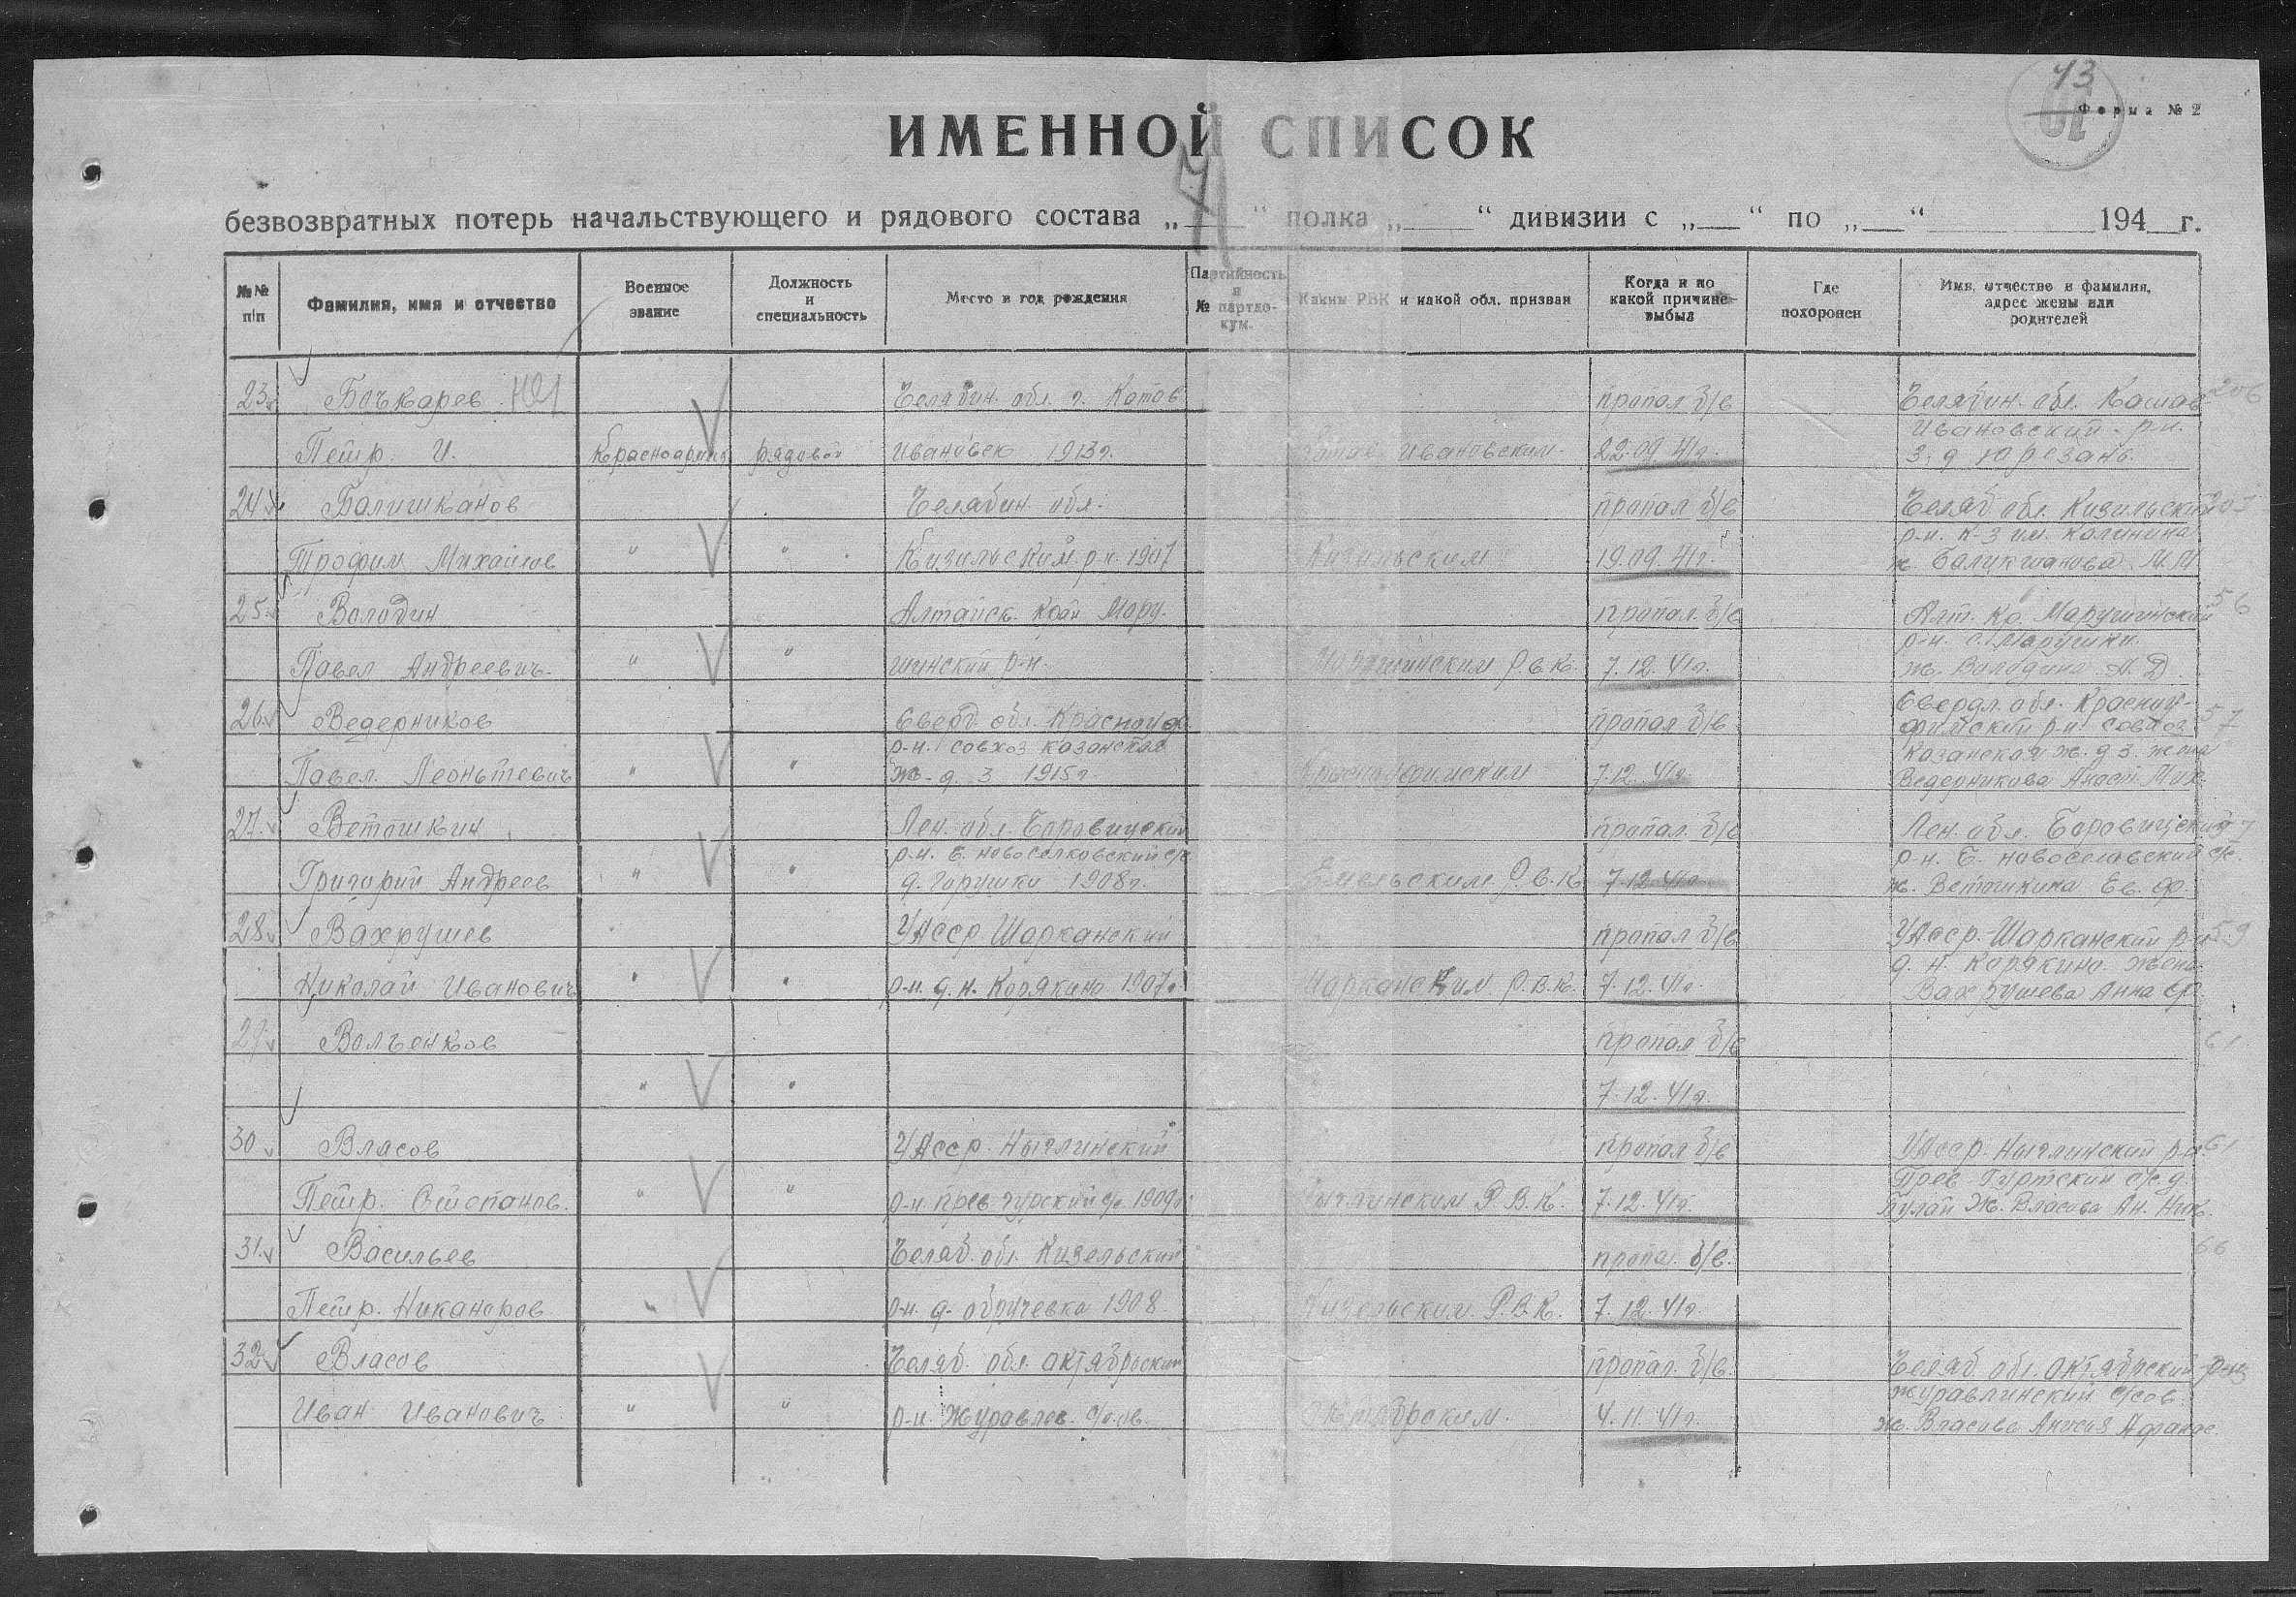 73
Форма № 2
ИМЕННОЙ СПИСОК
безвозвратных потерь начальствующего и рядового состава „ “ полка „ “ дивизии с „ “ по „ “ 194 г.
№№ п/п | Фамилия, имя и отчество | Военное звание | Должность и специальность | Место и год рождения | Партийность и № партдокум. | Каким РВК и какой обл. призван | Когда и по какой причине выбыл | Где похоронен | Имя, отчество и фамилия, адрес жены или родителей
23 Бочкарев Челябин. обл. г. Катав пропал б/в Челябин. обл. Катав 206
Ивановский р-н.
Петр И. Красноарм. рядовой Ивановск 1913г. Катав Ивановским 22.09.41г. з-д Юрезань
24 Балишканов Челябин обл. пропал б/в Челяб обл. Кизильский 207
р-н. к-з им. Калинина
Трофим Михайлов " " Кизильский р-н. 1907 Кизильским 19.09.41г. ж Баликшанова М.М
25 Володин Алтайск. край Мару- пропал. б/в Алт. кр. Марушинский 56
р-н. с. Марушки
Павел Андреевич " " шинский р-н. Марушинским Р.В.К. 7.12.41г. ж. Володина А.Д
26 Ведерников Сверд. обл. Красноуф. пропал б/в Свердл. обл. Красноу-
фимский р-н совхоз 57
р-н. совхоз казанская Казанская ж. д 3. жена
Павел. Леонтьевич " " ж-д. 3 1915г. Красноуфимским 7.12.41г Ведерникова Анаст. Мих.
27. Ветошкин Лен. обл. Боровичский пропал. б/в Лен. обл. Боровичский 57
р-н. Б. новоселковский с/с р-н. Б. новоселавский с/с.
Григорий Андреев " " д. Горушки 1908г. Р.В.К 7.12.41г. ж. Ветошкина Ев. Ф.
28. Вахрушев УАССР Шарканский пропал б/в УАССР. Шарканский р-н 59
д. Н. Корякино жена
Николай Иванович " " р-н. д. Н. Корякино 1907г Шарканским Р.В.К. 7.12.41г. Вахрушева Анна
29 Волченков пропал б/в 61
" " 7.12.41г.
30. Власов УАССР. Нылгинский пропал б/в УАССР. Нылгинский р-н. 61
Прев. Гуртский с/с д.
Петр. Степанов. " " р-н. прев-гурский с/с 1909г. Нылгинским Р.В.К. 7.12.41г. Пулай Ж. Власова Ан.
31. Васильев Челяб. обл. Кизельский пропал. б/в. 66
Петр. Никаноров " р-н. д. обручевка 1908. Кизельским Р.В.К. 7.12.41г.
32 Власов Челяб. обл. актябрьский пропал. б/в. Челяб обл. актябрский р-н
Журавлинский с/сов.
Иван Иванович " " р-н. Журавлев. с/сов. Октябрским. 4.11.41г. ж. Власова Анжия Афанас.